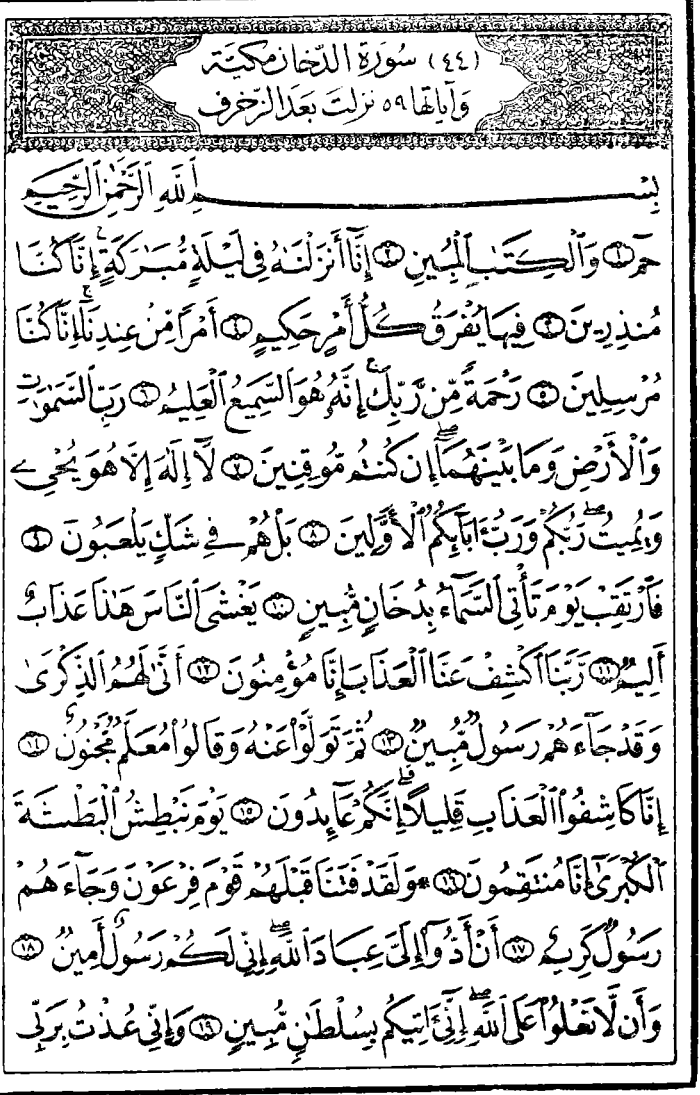 (٤٤) سُورَةِ الدّخان مكيّة
وَآياتها ٥٩ نزلت بَعدَ الزّخرف
بِسْمِ ٱللَّهِ ٱلرَّحْمَٰنِ ٱلرَّحِيمِ
حمٓ ١ وَٱلْكِتَٰبِ ٱلْمُبِينِ ٢ إِنَّآ أَنزَلْنَٰهُ فِى لَيْلَةٍ مُّبَٰرَكَةٍ ۚ إِنَّا كُنَّا
مُنذِرِينَ ٣ فِيهَا يُفْرَقُ كُلُّ أَمْرٍ حَكِيمٍ ٤ أَمْرًا مِّنْ عِندِنَآ ۚ إِنَّا كُنَّا
مُرْسِلِينَ ٥ رَحْمَةً مِّن رَّبِّكَ ۚ إِنَّهُۥ هُوَ ٱلسَّمِيعُ ٱلْعَلِيمُ ٦ رَبِّ ٱلسَّمَٰوَٰتِ
وَٱلْأَرْضِ وَمَا بَيْنَهُمَآ ۖ إِن كُنتُم مُّوقِنِينَ ٧ لَآ إِلَٰهَ إِلَّا هُوَ يُحْىِۦ
وَيُمِيتُ ۖ رَبُّكُمْ وَرَبُّ ءَابَآئِكُمُ ٱلْأَوَّلِينَ ٨ بَلْ هُمْ فِى شَكٍّ يَلْعَبُونَ ٩
فَٱرْتَقِبْ يَوْمَ تَأْتِى ٱلسَّمَآءُ بِدُخَانٍ مُّبِينٍ ١٠ يَغْشَى ٱلنَّاسَ ۖ هَٰذَا عَذَابٌ
أَلِيمٌ ١١ رَّبَّنَا ٱكْشِفْ عَنَّا ٱلْعَذَابَ إِنَّا مُؤْمِنُونَ ١٢ أَنَّىٰ لَهُمُ ٱلذِّكْرَىٰ
وَقَدْ جَآءَهُمْ رَسُولٌ مُّبِينٌ ١٣ ثُمَّ تَوَلَّوْا۟ عَنْهُ وَقَالُوا۟ مُعَلَّمٌ مَّجْنُونٌ ١٤
إِنَّا كَاشِفُوا۟ ٱلْعَذَابِ قَلِيلًا ۚ إِنَّكُمْ عَآئِدُونَ ١٥ يَوْمَ نَبْطِشُ ٱلْبَطْشَةَ
ٱلْكُبْرَىٰٓ إِنَّا مُنتَقِمُونَ ١٦ * وَلَقَدْ فَتَنَّا قَبْلَهُمْ قَوْمَ فِرْعَوْنَ وَجَآءَهُمْ
رَسُولٌ كَرِيمٌ ١٧ أَنْ أَدُّوٓا۟ إِلَىَّ عِبَادَ ٱللَّهِ ۖ إِنِّى لَكُمْ رَسُولٌ أَمِينٌ ١٨
وَأَن لَّا تَعْلُوا۟ عَلَى ٱللَّهِ ۖ إِنِّىٓ ءَاتِيكُم بِسُلْطَٰنٍ مُّبِينٍ ١٩ وَإِنِّى عُذْتُ بِرَبِّى